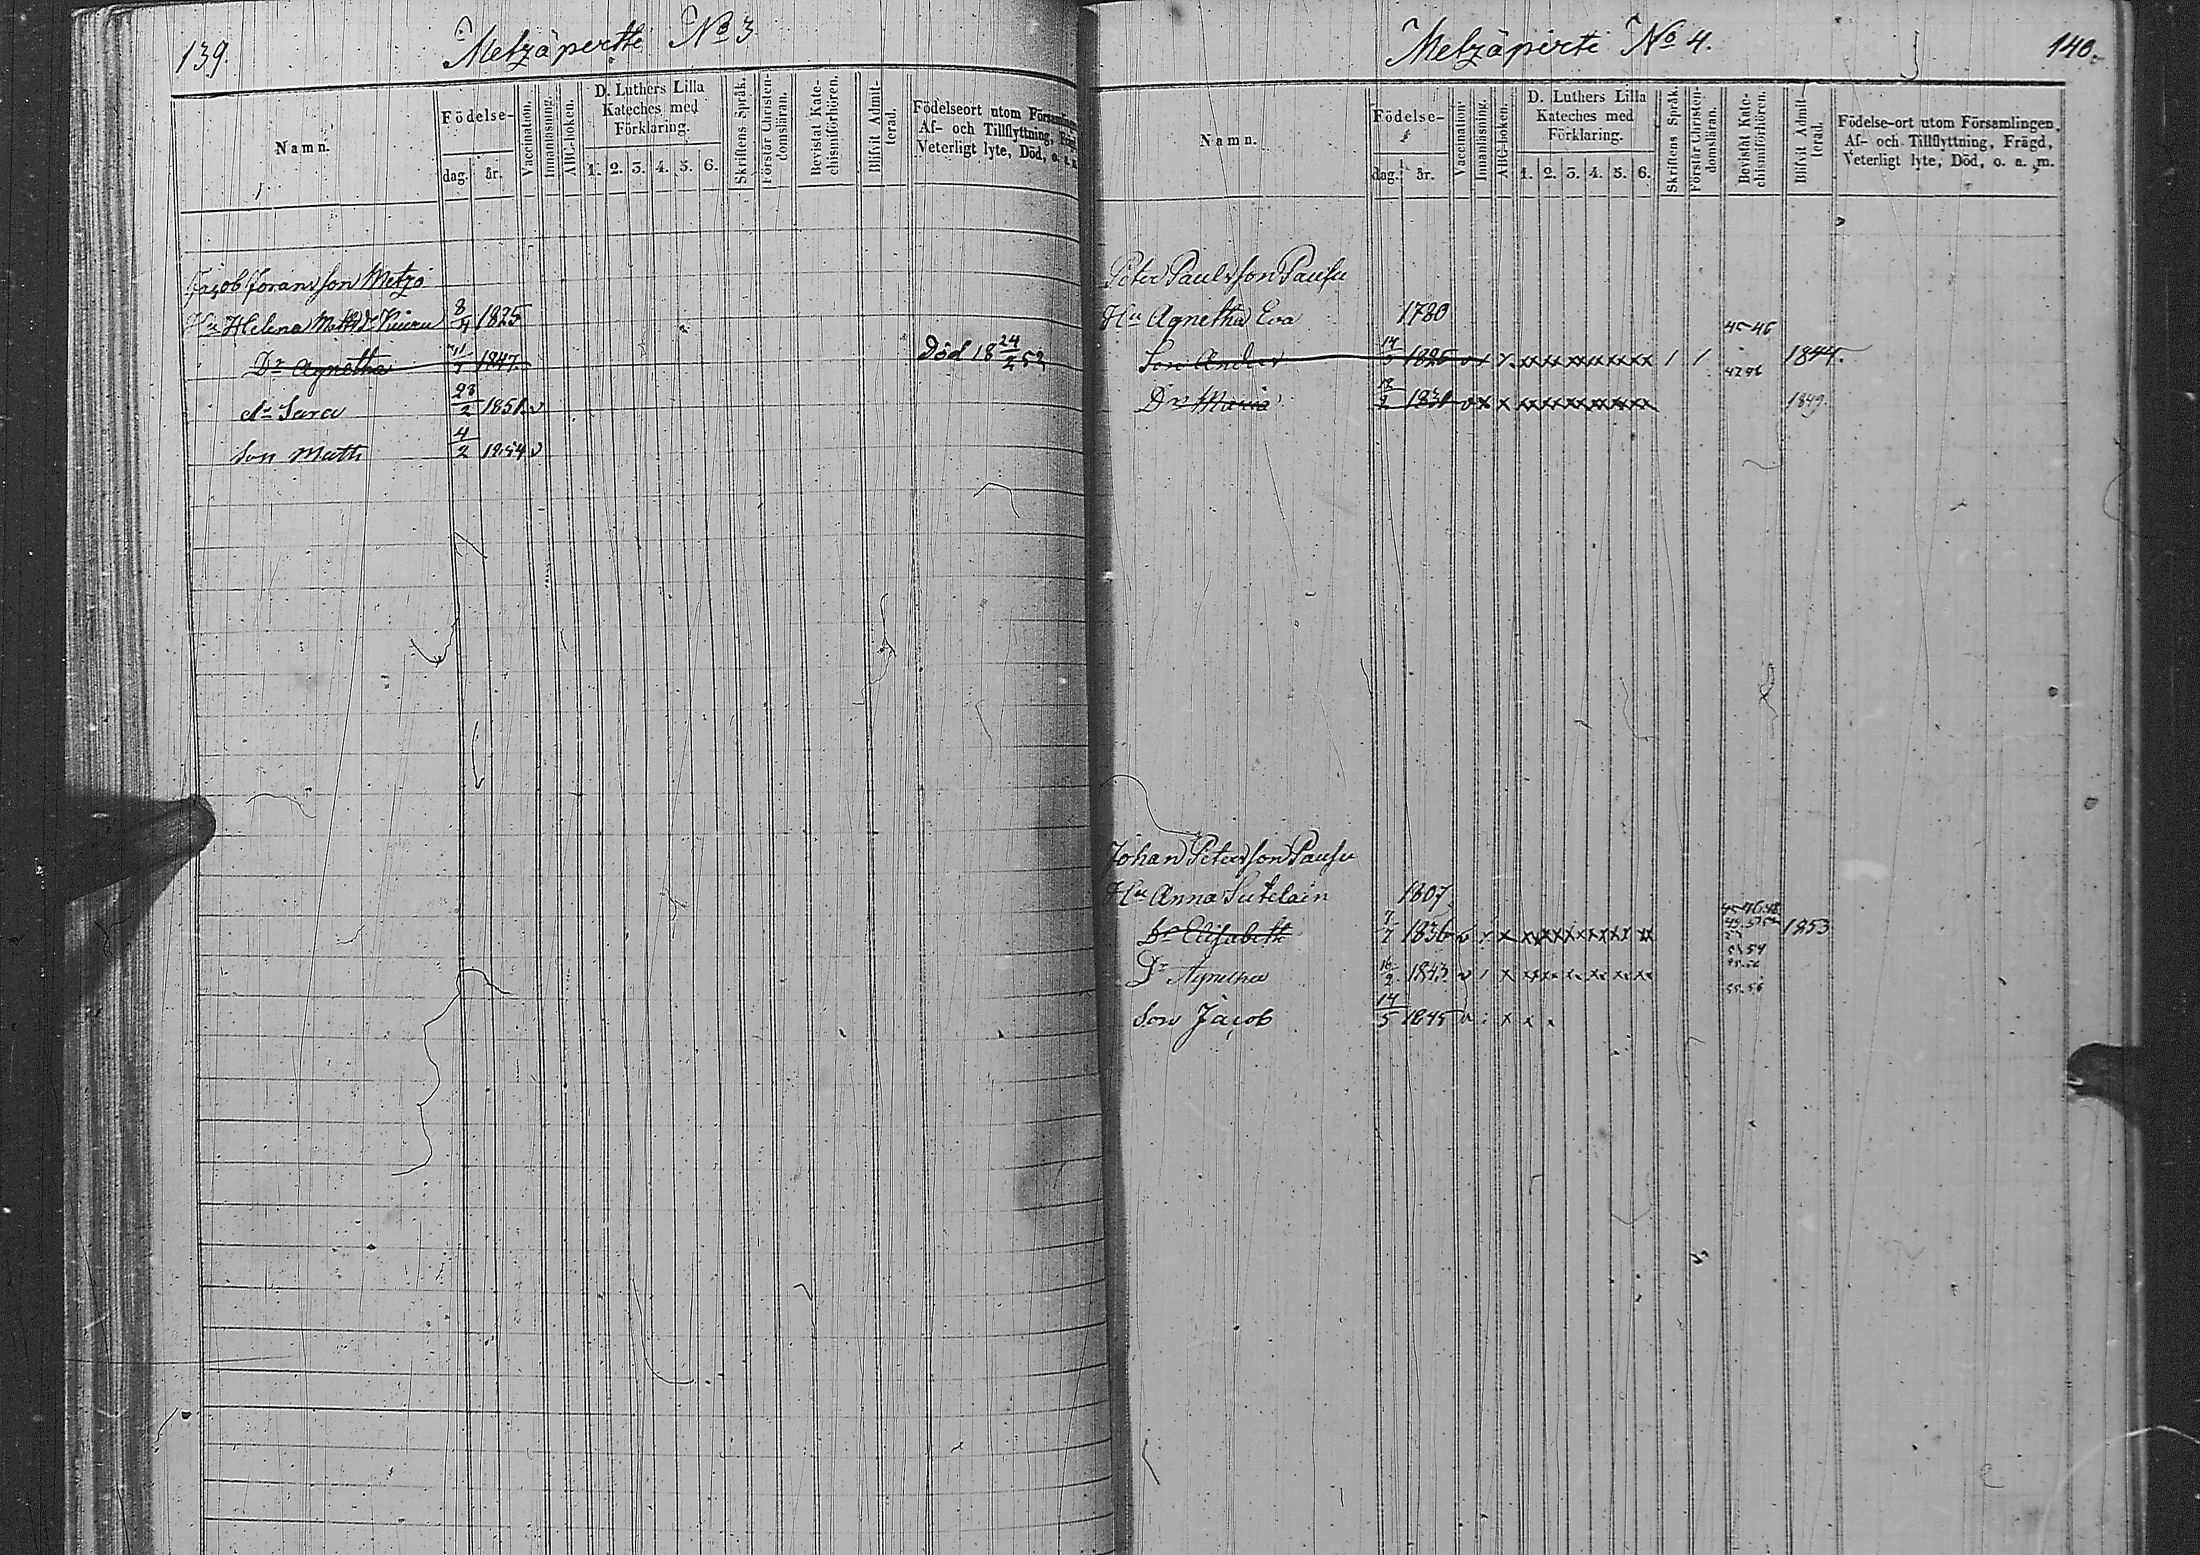 139. Metzäpertti No 3
Namn. Födelse- dag. år. Vaccination. Innanläsning. ABC-boken. D. Luthers Lilla Kateches med Förklaring. 1. 2. 3. 4. 5. 6. Skriftens Språk. Förstår Christendomsläran. Bevistat Kate-chismiförhören. Blifvit Admit-terad. Födelseort utom Församlingen Af- och Tillflyttning, Veterligt lyte, Död, o. a. m.
Jacob Joransson Metzo
Hu Helena Matts dr 8/4 1825
Dr Agnetha 1847 Död 18 24/2 52
dr Sara 23/2 1851 v
Son Matts 4/2 1854 v
Metzäpirti No 4. 140.
Namn. Födelse- dag. år. Vaccination. Innanläsning. ABC-boken. D. Luthers Lilla Kateches med Förklaring. 1. 2. 3. 4. 5. 6. Skriftens Språk. Förstår Christen-domsläran. Bevistat Kate-chismiförhören. Blifvit Admit-terad. Födelse-ort utom Församlingen, Af- och Tillflyttning, Frägd, Veterligt lyte, Död, o. a. m.
Peter Paulsson Pausu
Hu Agnetha Eva 1780 45-46
Son Anders 1825 v x x xx xx xx xx xx xx / / 1844.
Dr Maria 1831 v x x xx xx xx xx xx xx 1849.
Johan Petersson Pausu
Hu Anna Sutelain 1807
Dr Elisabeth 1836 v x xx xx xx xx xx xx 1853
Dr Agnetha 16/2 1843 v x xx xx xx xx xx
Son Jacob 14/5 1845 v x x